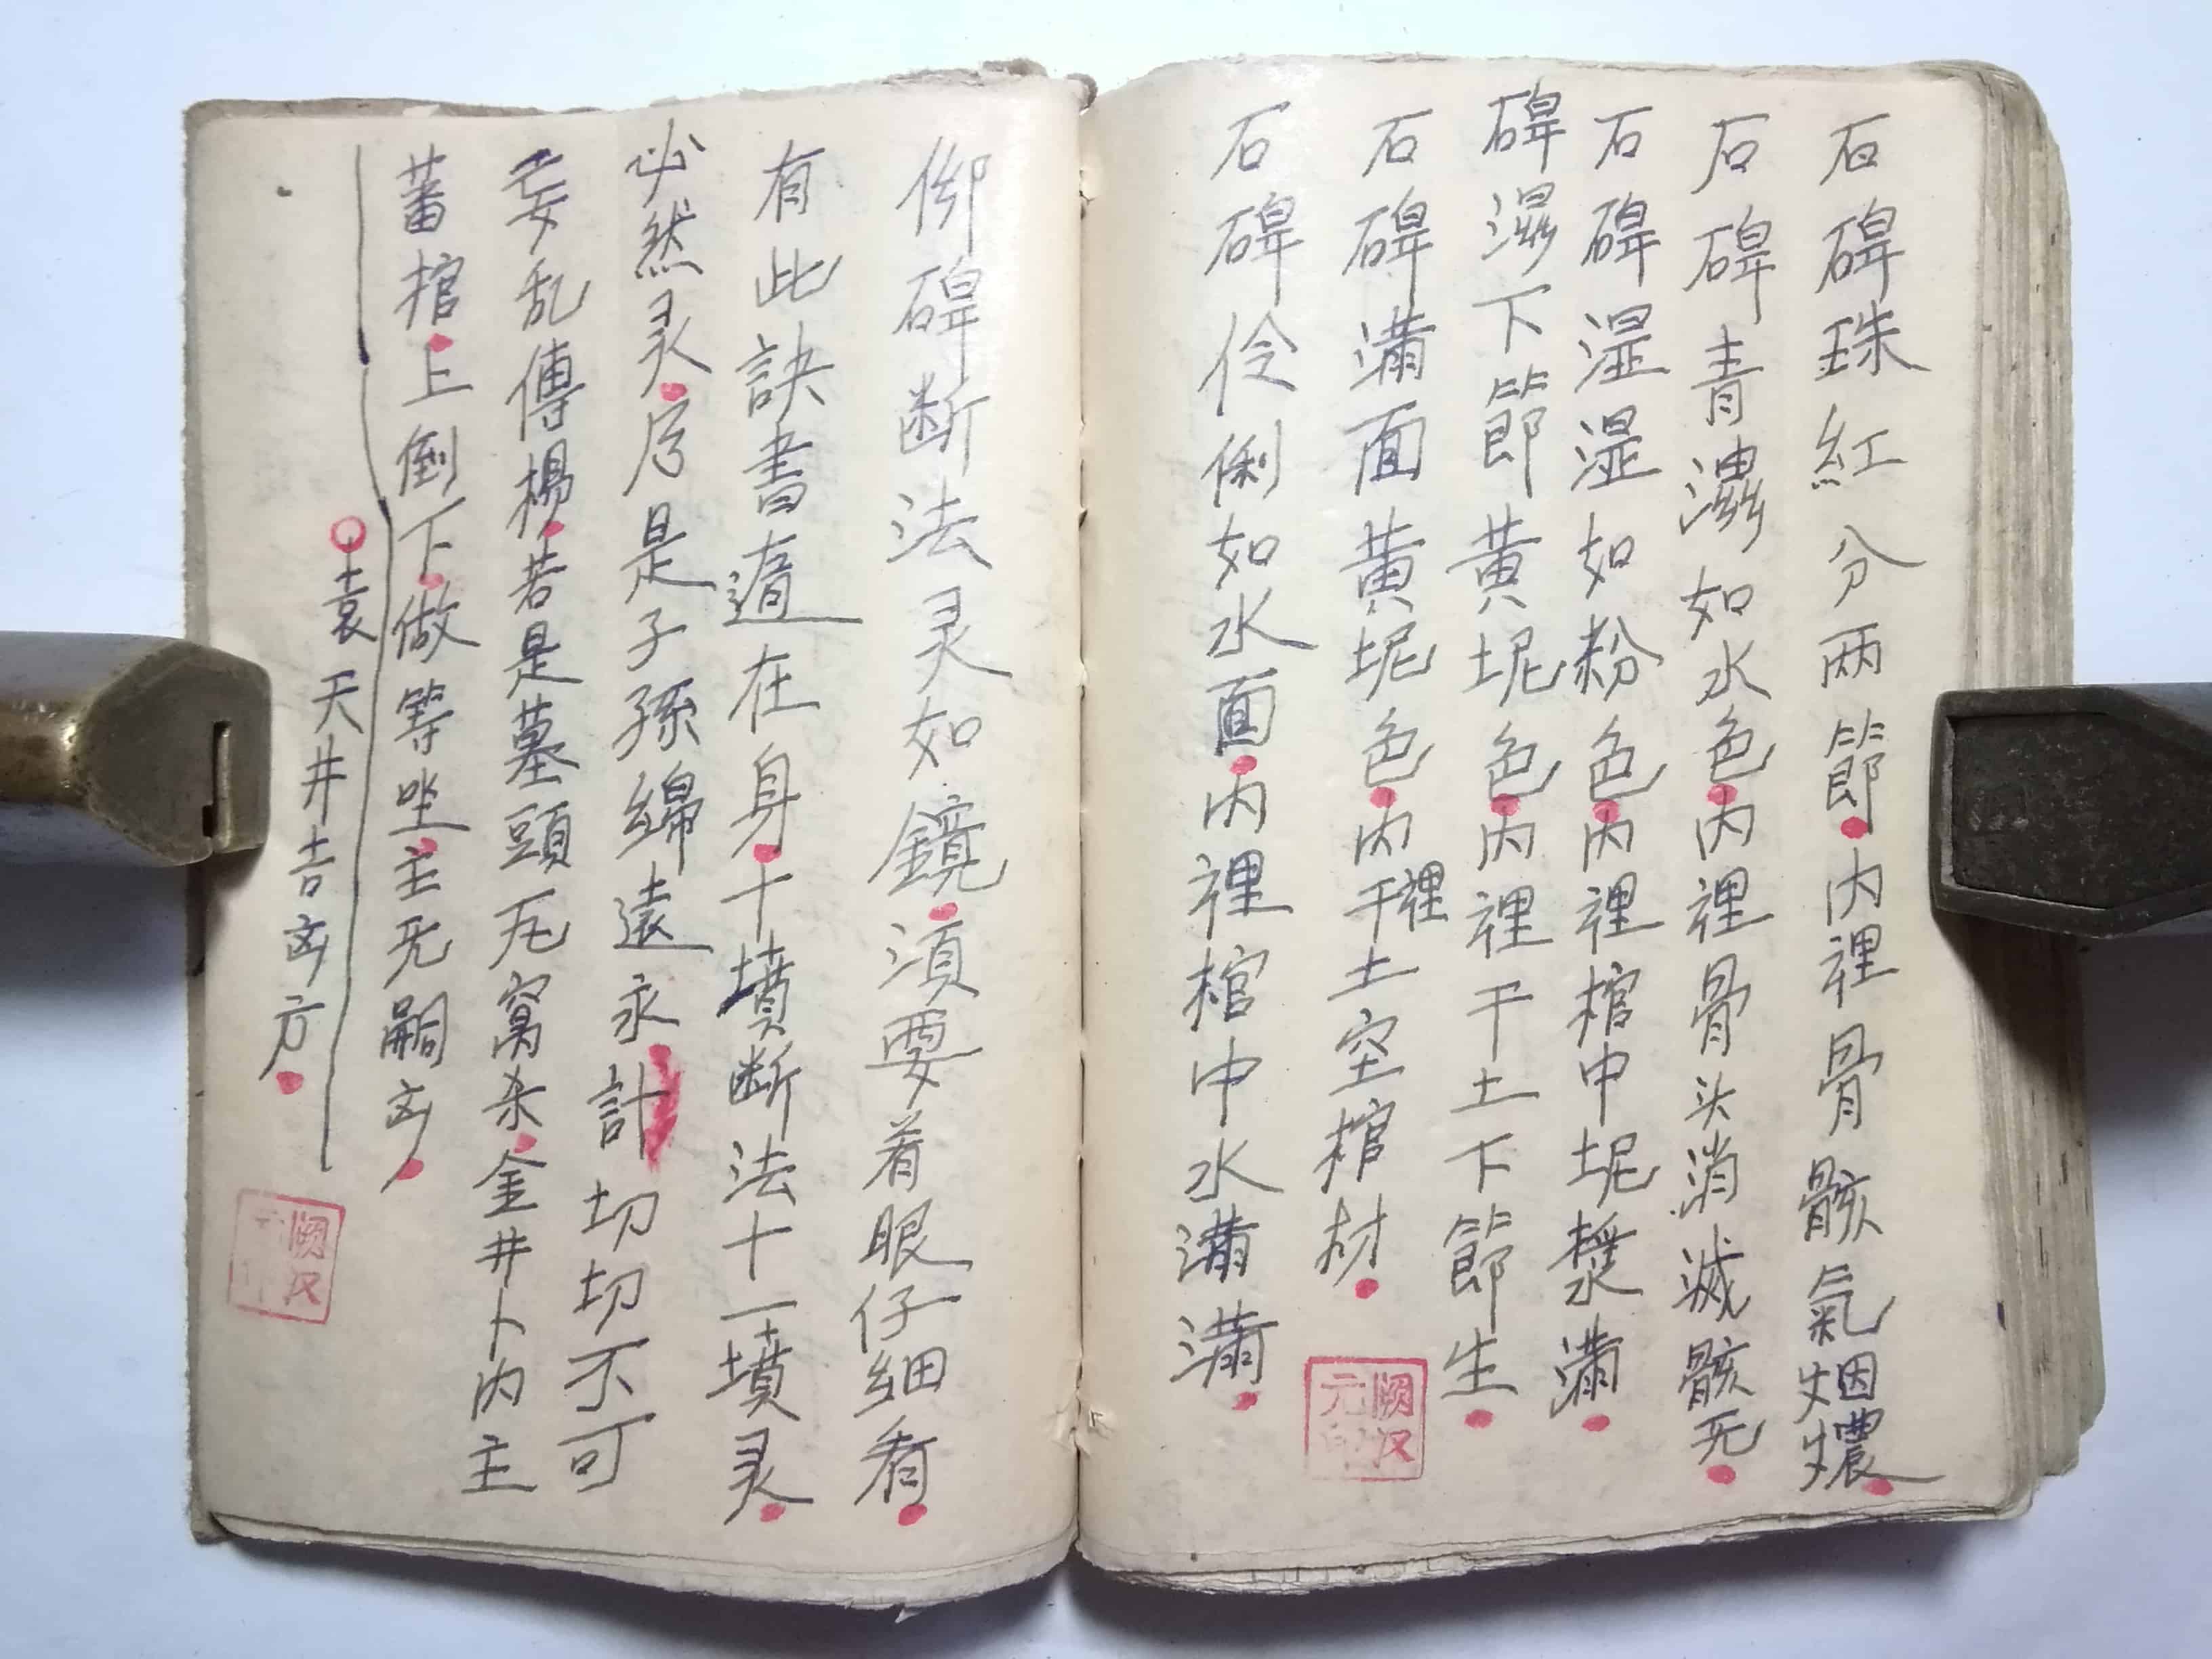 石碑珠紅分两節内裡骨骸氣烟燶
石碑青濕如水色内裡骨头消滅骸死
石碑湿湿如粉色内裡棺中坭漿滿
碑濕下節黃坭色内裡干土下節生
石碑滿面黃坭色内裡干土空棺材
石碑伶俐如水面内裡棺中水滿滿
阙汉元
御碑断法灵如鏡須要着眼仔細看
有此訣書適在身十墳断法十一墳灵
必然灵后是子孫綿遠永計切切不可
妄乱傳揚若是墓頭死窩杀金井卜内主
蓄棺上倒下做等坐主无嗣凶
袁天井吉凶方
阙汉